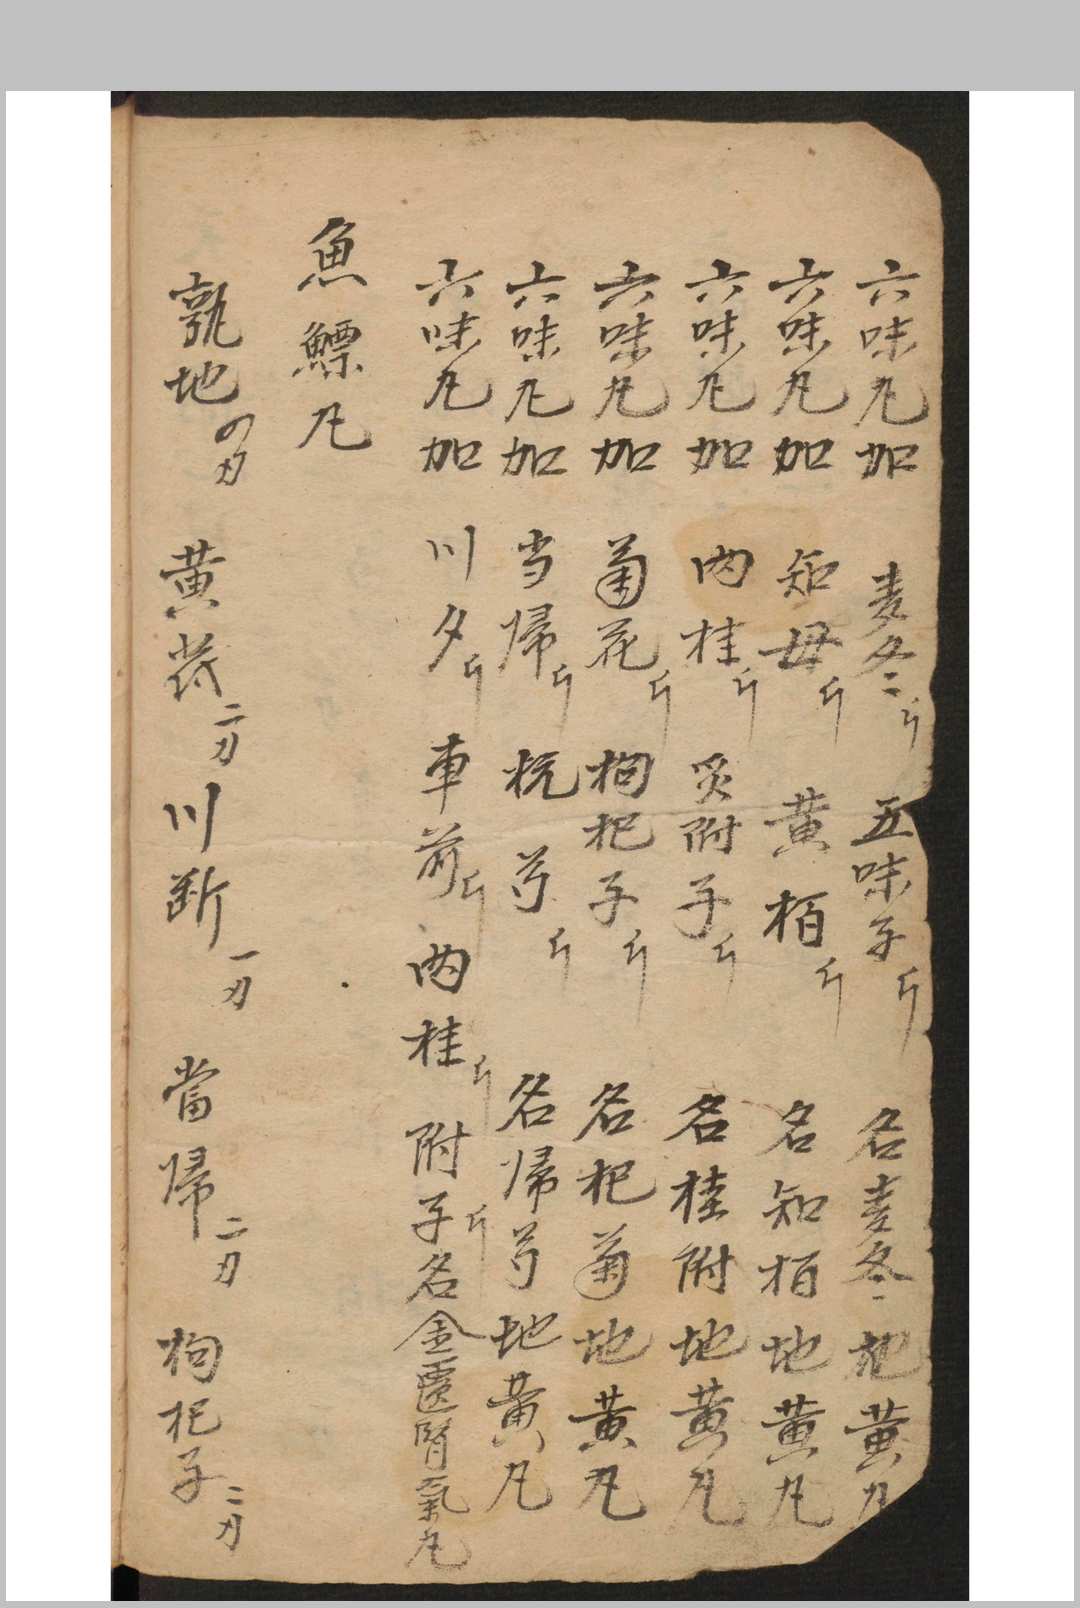 六味凡加 麦冬二斤 五味子斤 名麦冬地黄凡
六味凡加 知母斤 黄栢斤 名知栢地黄凡
六味凡加 肉桂斤 炙附子斤 名桂附地黄凡
六味凡加 菊花斤 枸杞子斤 名杞菊地黄凡
六味凡加 当歸斤 杭芍斤 名歸芍地黄凡
六味凡加 川夕斤 車前斤 肉桂斤 附子斤 名金匱腎氣凡
魚鰾凡
孰地四刃 黄芪二刃 川断一刃 當歸二刃 枸杞子二刃